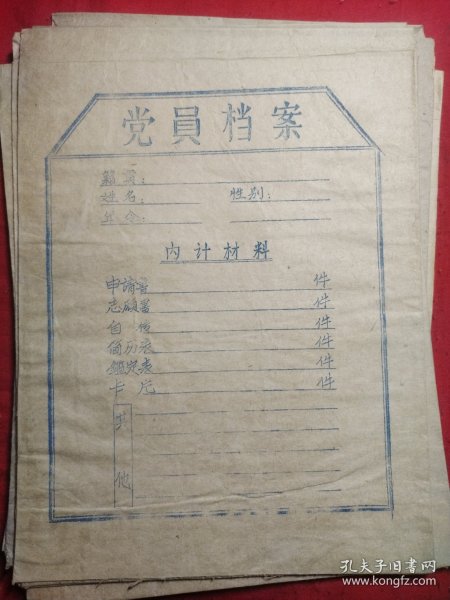 党員档案
籍贯：
姓名：　性别：
年令：
内计材料
申请書 件
志願書 件
自传 件
简历表 件
鑑定表 件
卡片 件
其他
孔夫子旧書网
www.kongfz.com